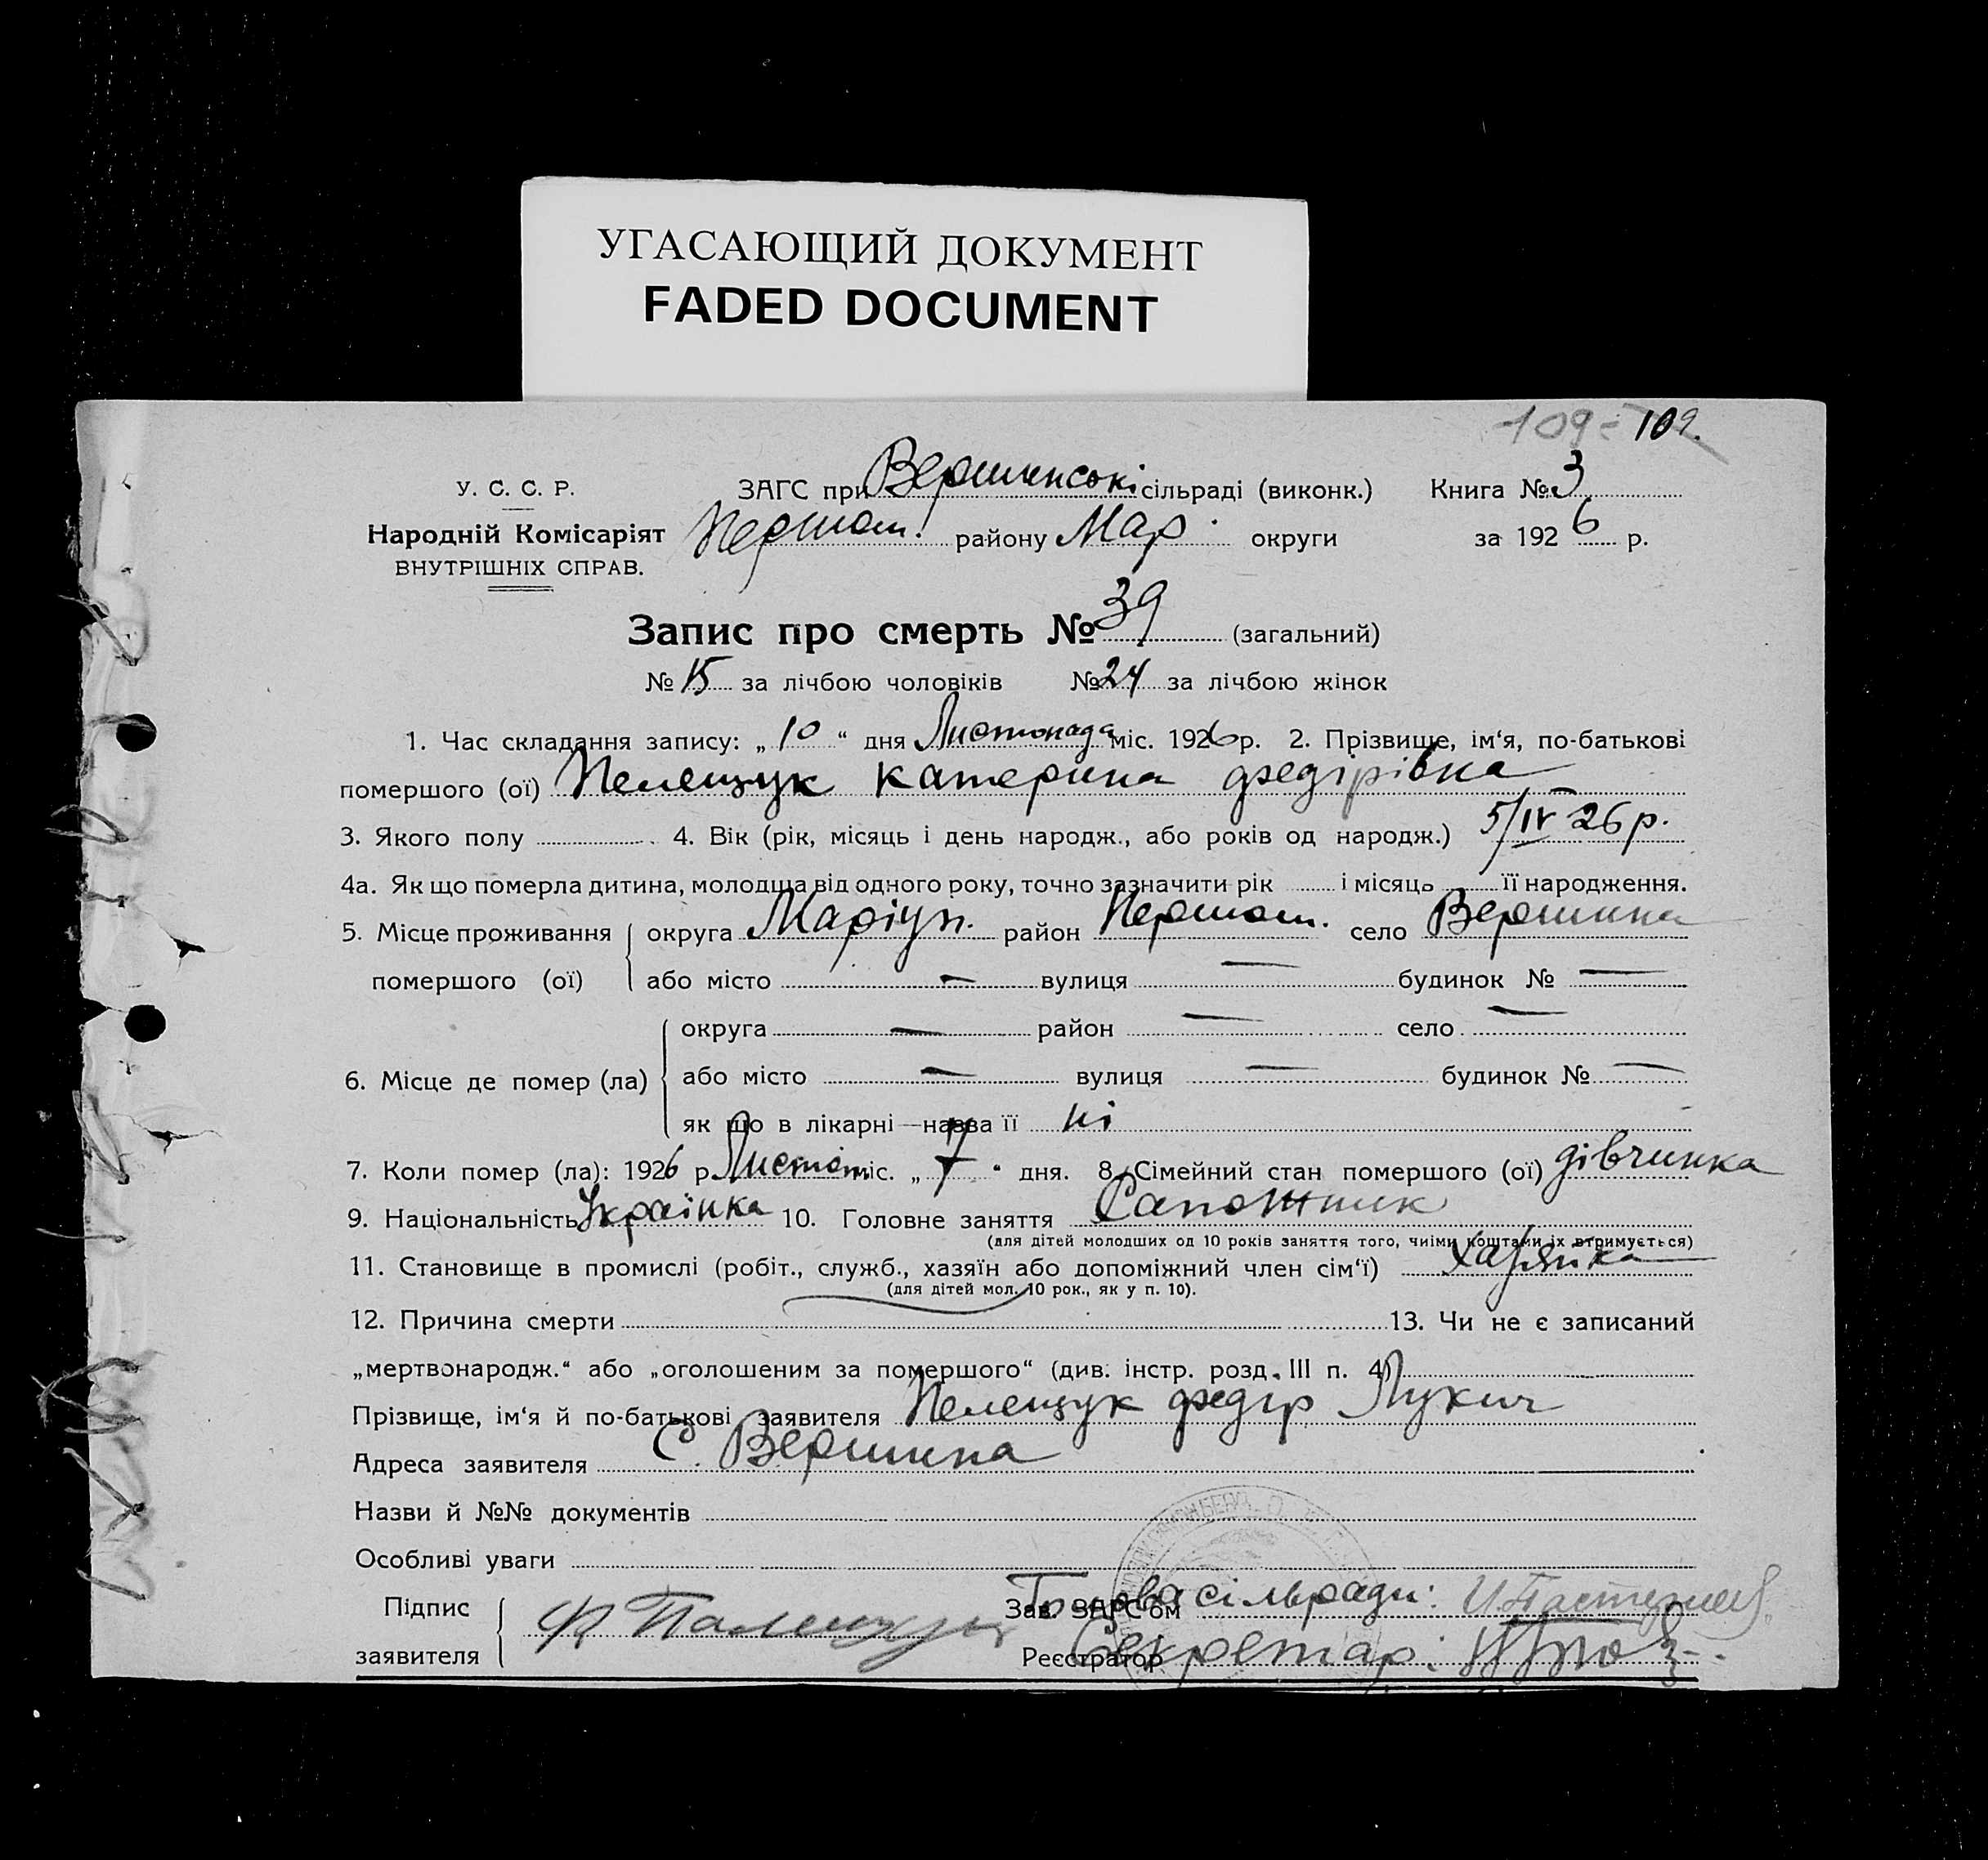 УГАСАЮЩИЙ ДОКУМЕНТ
FADED DOCUMENT
109 109.
У. С. С. Р. ЗАГС при Вершинські сільраді (виконк.) Книга № 3
Народній Комісаріят Першот. району Мар. округи за 1926 р.
ВНУТРІШНІХ СПРАВ.
Запис про смерть № 39 (загальний)
№ 15 за лічбою чоловіків № 24 за лічбою жінок
1. Час складання запису: „10“ дня Листопада міс. 1926 р. 2. Прізвище, ім‘я, по-батькові
помершого (ої) Пелещук Катерина Федірівна
3. Якого полу 4. Вік (рік, місяць і день народж., або років од народж.) 5/IV 26 р.
4а. Як що померла дитина, молодша від одного року, точно зазначити рік і місяць її народження.
5. Місце проживання округа Маріуп. район Першот. село Вершина
помершого (ої) або місто — вулиця — будинок № —
округа — район — село —
6. Місце де помер (ла) або місто — вулиця — будинок № —
як що в лікарні—назва її ні
7. Коли помер (ла): 1926 р. Листоп міс. „7“ дня. 8. Сімейний стан помершого (ої) дівчинка
9. Національність Українка 10. Головне заняття Сапожник
(для дітей молодших од 10 років заняття того, чиїми коштами їх втримується)
11. Становище в промислі (робіт., служб., хазяїн або допоміжний член сім‘ї)
(для дітей мол. 10 рок., як у п. 10).
12. Причина смерти 13. Чи не є записаний
„мертвонародж.“ або „оголошеним за помершого“ (див. інстр. розд. III п. 4)
Прізвище, ім‘я й по-батькові заявителя Пелещук Федір Лукич
Адреса заявителя С. Вершина
Назви й №№ документів
Особливі уваги
Підпис Зав. ЗАГС‘ом Голова сільради:
заявителя Ф Палещук Реєстратор Секретар: